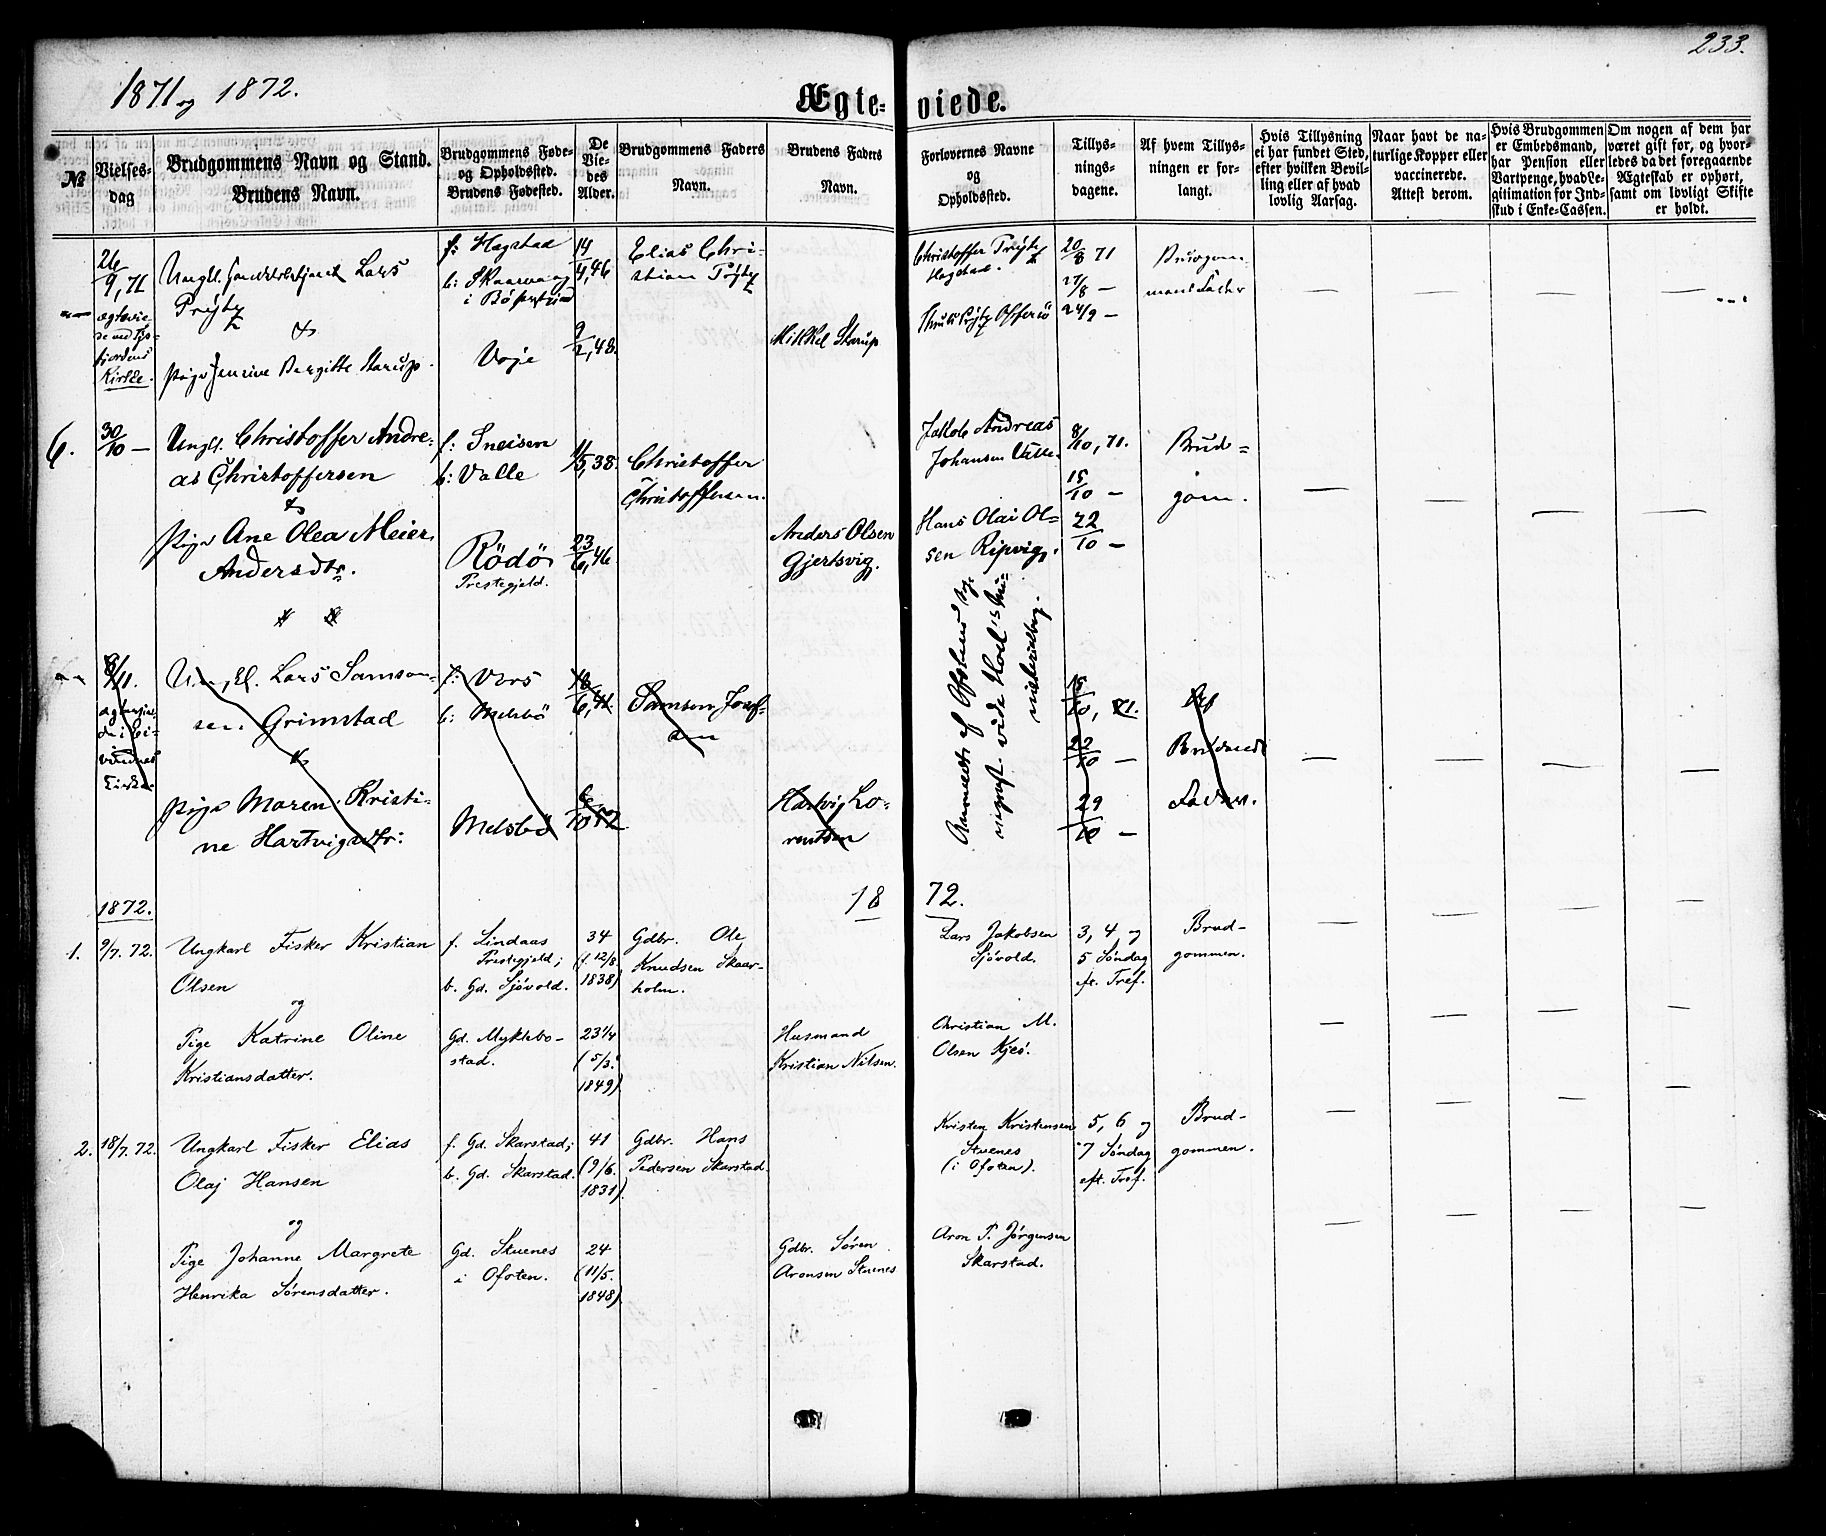 233.
1871 og 1872.
Ægte- viede.
№
Vielses-
dag
Brudgommens Navn og Stand.
Brudens Navn.
Brudgommens Føde-
og Opholdssted.
Brudens Fødested.
De
Vie-
des
Alder.
Brudgommens Faders
Navn.
Brudens Faders
Navn.
Forlovernes Navne
og
Opholdssted.
Tillys-
nings-
dagene.
Af hvem Tillys-
ningen er for-
langt.
Hvis Tillysning
ei har fundet Sted,
efter hvilken Bevil-
ling eller af hvad
lovlig Aarsag.
Naar havt de na-
turlige Kopper eller
vaccinerede.
Attest derom.
Hvis Brudgommen
er Embedsmand,
har Pension eller
Vartpenge, hvad Le-
gitimation for Ind-
skud i Enke-Cassen.
Om nogen af dem har
været gift før, og hvor-
ledes da det foregaaende
Ægteskab er ophørt,
samt om lovligt Skifte
er holdt.
26/9, 71
Lars
Prÿtz
&
Pige Jensine Bergitte Starup
Kirkke.
f: Hagstad
b:
i Bö
Voje
14/4, 46
9/2, 48.
Elias Chri-
stian Prÿtz
Mikkel Starup
Christoffer Prÿtz
Hagstad.
Offersö
20/8 71
27/8 —
24/9 —
Brudgom-
mens Fader
6.
30/10 —
Ungk. Christoffer Andre-
as Christoffersen
&
Pige Ane Olea Meier
Andersdtr.
f: Sneisen
b: Valle
Rödö
Prestegjeld.
11/5, 38.
23/6, 46
Christoffer
Christoffersen.
Anders Olsen
Gjertsvig.
Jakob Andreas
Johansen Valle.
Hans Olai Ol-
sen Ripvig.
8/10, 71.
15/10 —
22/10 —
Brud-
gom.
Lars Samson-
sen Grimstad
&
Pige Maren Kristi-
ne Hartvigsdtr:
f: Vors
b: Melsbö
Melsbö
Samson Josef-
sen
Hartvig Lo-
rentsen
15/10, 71.
22/10 —
29/10 —
Af
Brudens
Fader.
1872.
18 72.
1.
9/7. 72.
Ungkarl Fisker Kristian
Olsen
og
Pige Katrine Oline
Kristiansdatter.
f. Lindaas
Prestegjeld;
b. Gd. Sjövold.
Gd. Myklebo-
stad.
34
(f. 12/8
1838)
23 1/4
(5/3.
1849)
Gdbr. Ole
Knudsen Skaar-
holm.
Husmand
Kristian Nilsen.
Lars Jakobsen
Sjövold.
Christian M.
Olsen Kjeö.
3, 4 og
5 Söndag
ft. Tref.
Brud-
gommen.
2.
18/7. 72.
Ungkarl Fisker Elias
Olaj Hansen
og
Pige Johanne Margrete
Henrika Sørensdatter.
f. Gd. Skarstad;
b. Gd. Skarstad.
Gd. Stuenes
i Ofoten.
41
(9/6.
1831)
24
(11/5.
1848)
Gdbr. Hans
Pedersen Skarstad.
Gdbr. Søren
Aronsen Stuenes
Kristen Kristensen
Stuenes
(i Ofoten).
Aron P. Jørgensen
Skarstad.
5, 6 og
7 Söndag
eft. Tref.
Brud-
gommen.